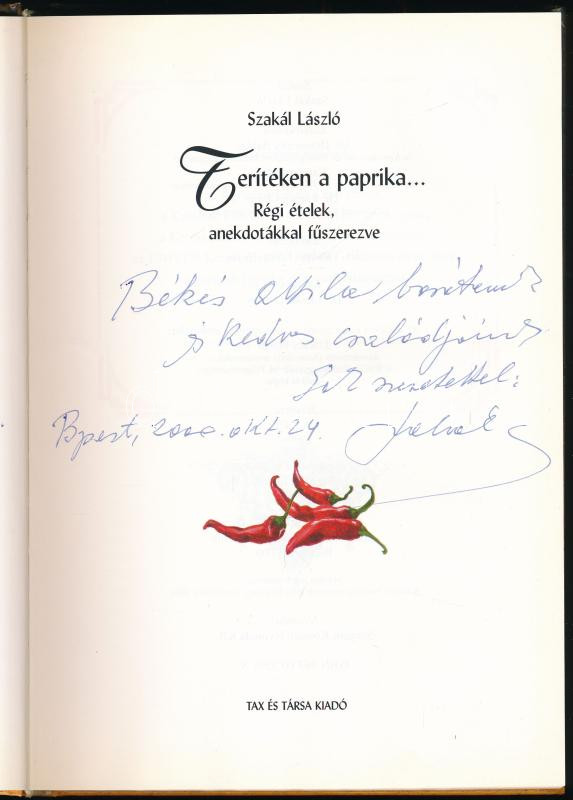 Szakál László
Terítéken a paprika...
Régi ételek,
anekdotákkal fűszerezve
Békés Attila barátomnak
és kedves családjának
Sok szeretettel:
Bpest, 2000. okt. 24. Szakál
TAX ÉS TÁRSA KIADÓ